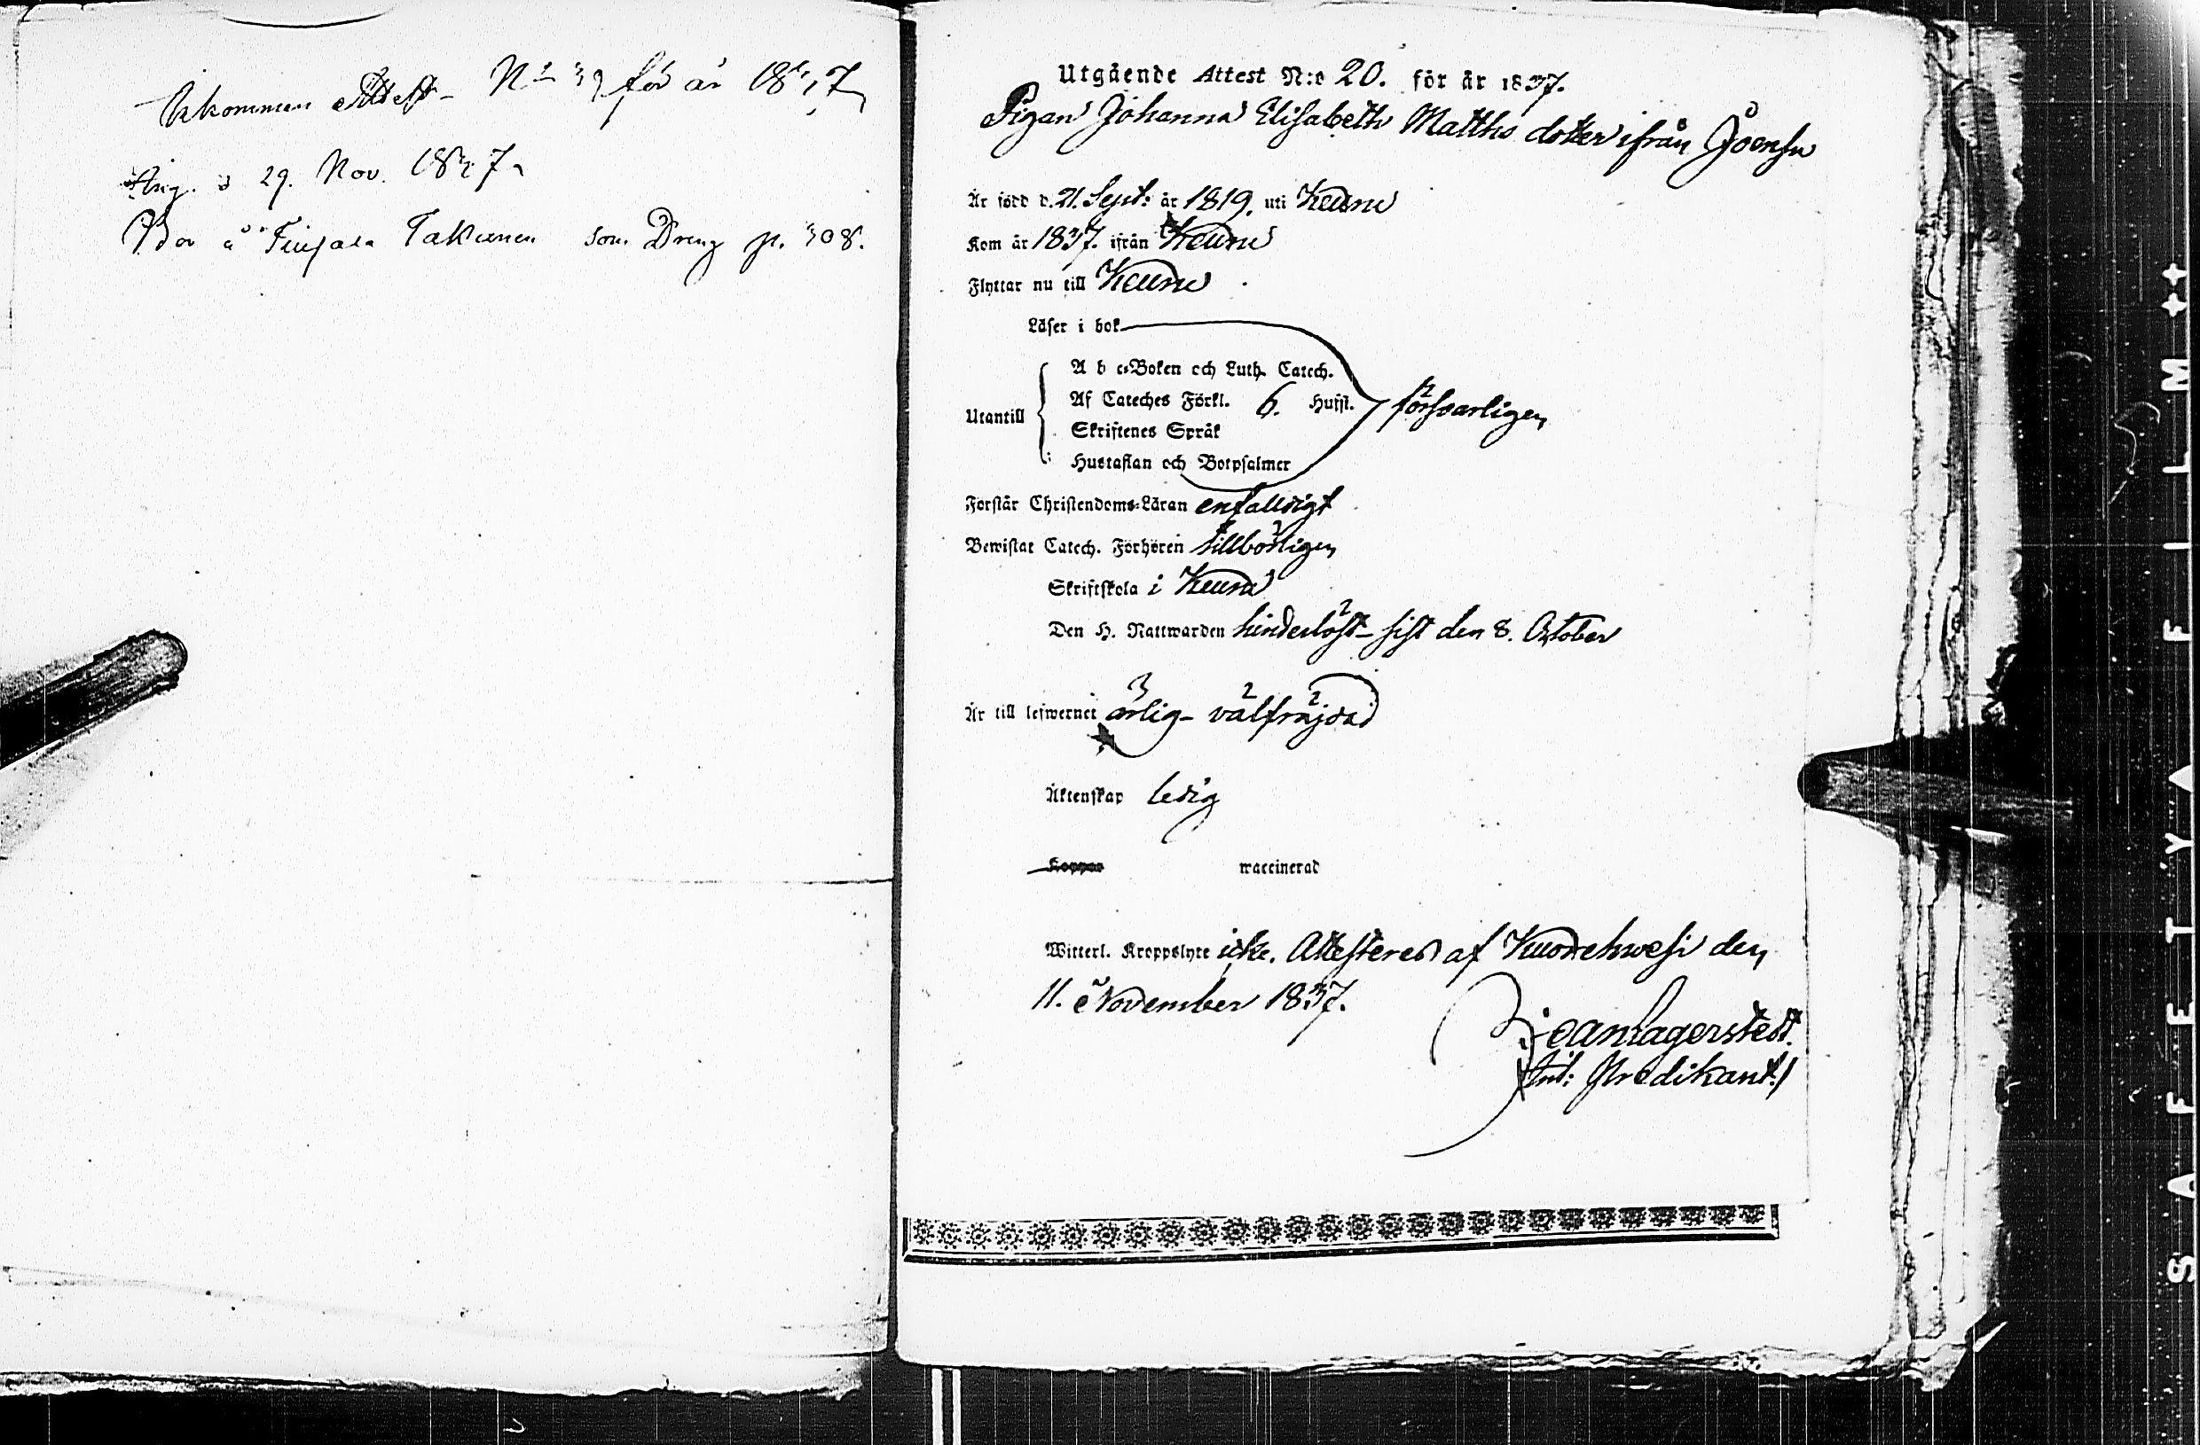 Inkommen Attest N:o 39 för år 1837
Ang. d 29. Nov. 1837
Bor å Takunen som Dreng p. 308.
Utgående Attest N:o 20. för år 1837.
Pigan Johanna Elisabeth Matths doter ifrån Joensu
Är född d. 21. Sept: år 1819. uti Keuru
Kom år 1837. ifrån Keuru
Flyttar nu till Keuru
Läser i bok
A b c-Boken och Luth. Catech.
Af Cateches Förkl. 6. Hufst. försvarligen
Utantill
Skriftenes Språk
Hustaflan och Botpsalmer
Förstår Christendoms-Läran enfalldigt
Bewistat Catech. Förhören tillbörligen
Skriftskola i Keuru
Den H. Nattwarden hinderlöst - sist den 8. October
Är till lefwernet ärlig - välfräjdad
Äktenskap ledig
Koppor waccinerad
Witterl. Kroppslyte icke. Attesteres af Kuorehwesi den
11. November 1837.
Jean Lagerstedt.
Predikant.
SAFETY FILM